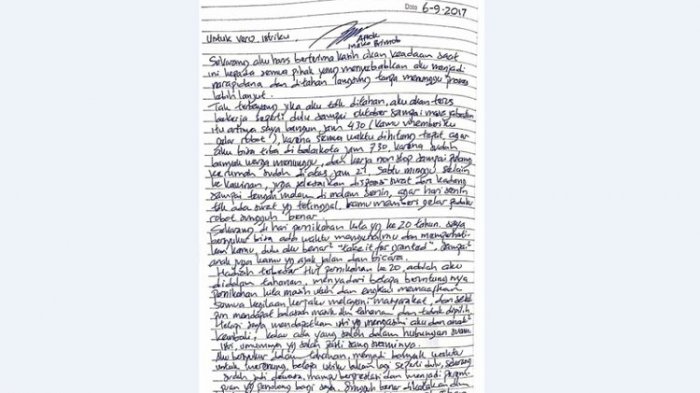 Date 6-9-2017
Untuk Vero, istriku.
Ahok
Mako Brimob
Sekarang aku harus berterima kasih akan keadaan saat
ini kepada semua pihak yang menyebabkan aku menjadi
narapidana dan ditahan langsung tanpa menunggu proses
lebih lanjut.
Tak terbayang jika aku tdk ditahan, aku akan terus
bekerja seperti dulu sampai oktober sampai masa jabatan
itu artinya saya bangun, jam 4.30 (kamu memberiku
gelar robot), karena semua waktu dihitung tepat agar
aku bisa tiba di balaikota jam 7.30, karena sudah
banyak warga menunggu, dan kerja non stop sampai pulang
ke rumah sudah di atas jam 21. Sabtu minggu selain
ke kawinan, juga selesaikan disposisi surat dan kadang
sampai tengah malam di malam senin, agar hari senin
tdk ada surat yg tertinggal, kamu memberi gelar
robot sungguh benar.
Sekarang di hari pernikahan kita yg ke 20 tahun. saya
bersyukur bisa ada waktu mengenalmu dan memperhati-
kan kamu, dulu aku benar² "take it for granted".
anak juga kamu yg ajak jalan dan bicara.
Hadiah terbesar HUT pernikahan ke 20, adalah aku
didalam tahanan, menyadari betapa beruntungnya
pernikahan kita masih utuh dan engkau memaafkan
semua kegilaan kerjaku melayani masyarakat, dan
pun mendapat balasan masuk ke tahanan dan tidak dipilih
Tetapi saya mendapatkan istri yg mengasihi aku dan anak²
kembali, kalau ada yang salah dalam hubungan suami
istri, umumnya yg salah pasti sang suaminya.
Aku bersyukur dalam tahanan, menjadi banyak waktu
untuk merenung, belajar lagi seperti dulu, seorang
sudah jadi dewasa, mampu berprestasi dan menjadi
yg penolong bagi saya. Sungguh benar dikatakan